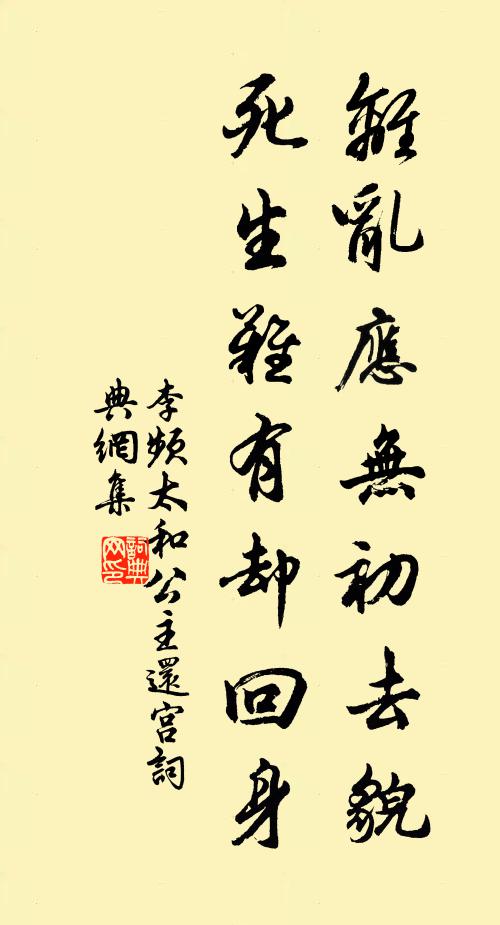 離亂應無初去貌
死生難有却回身
李頻太和公主還宮詞
典網集
詞典網印